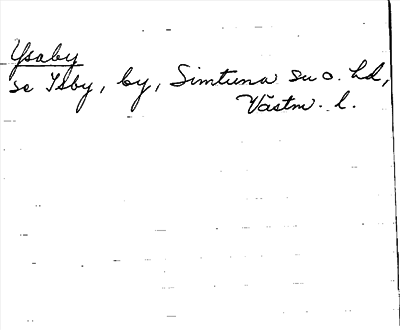 Ysaby
se Ysby, by, Simtuna su o. hd,
Västm. l.